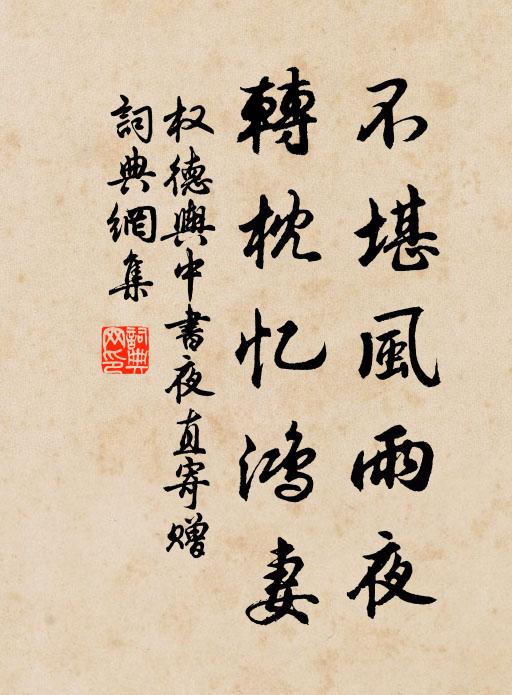 不堪風雨夜
轉枕忆鴻妻
权德輿中書夜直寄贈
詞典網集
詞典
网印